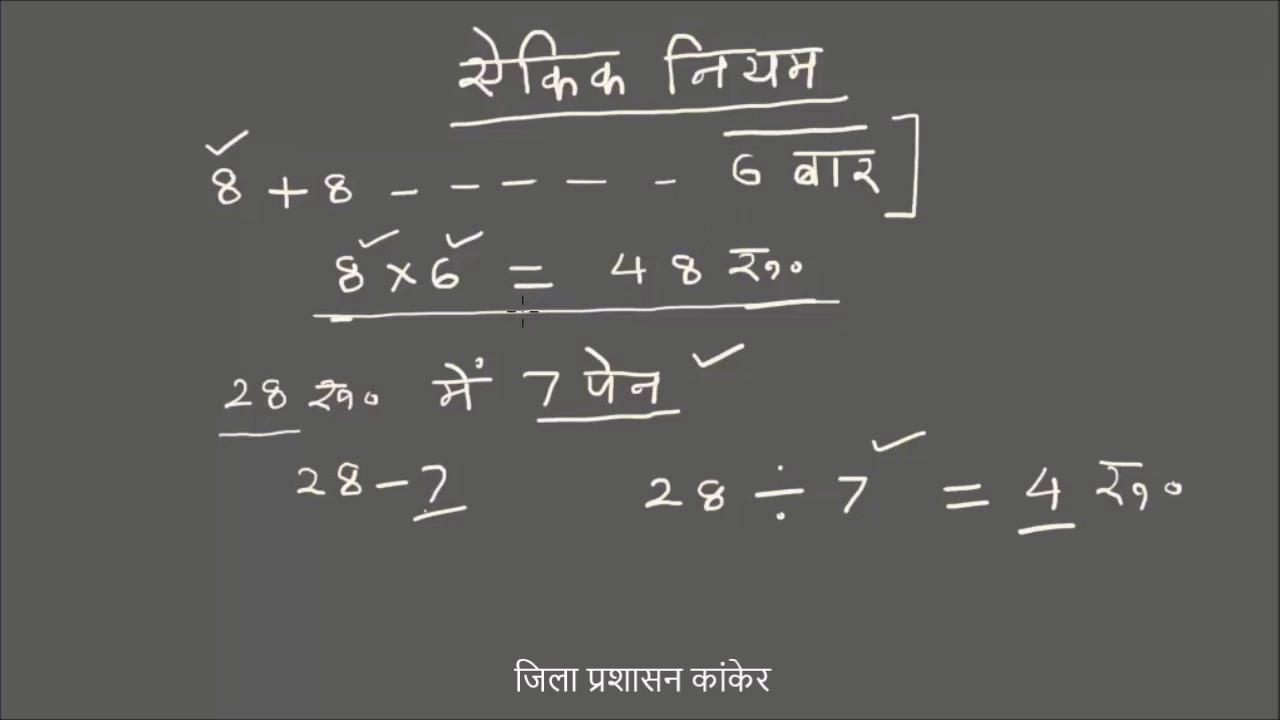 ऐकिक नियम
8 + 8 - - - - - - 6 बार ]
8 × 6 = 48 रु०
28 रु० में 7 पेन
28 - 7 28 ÷ 7 = 4 रु०
जिला प्रशासन कांकेर